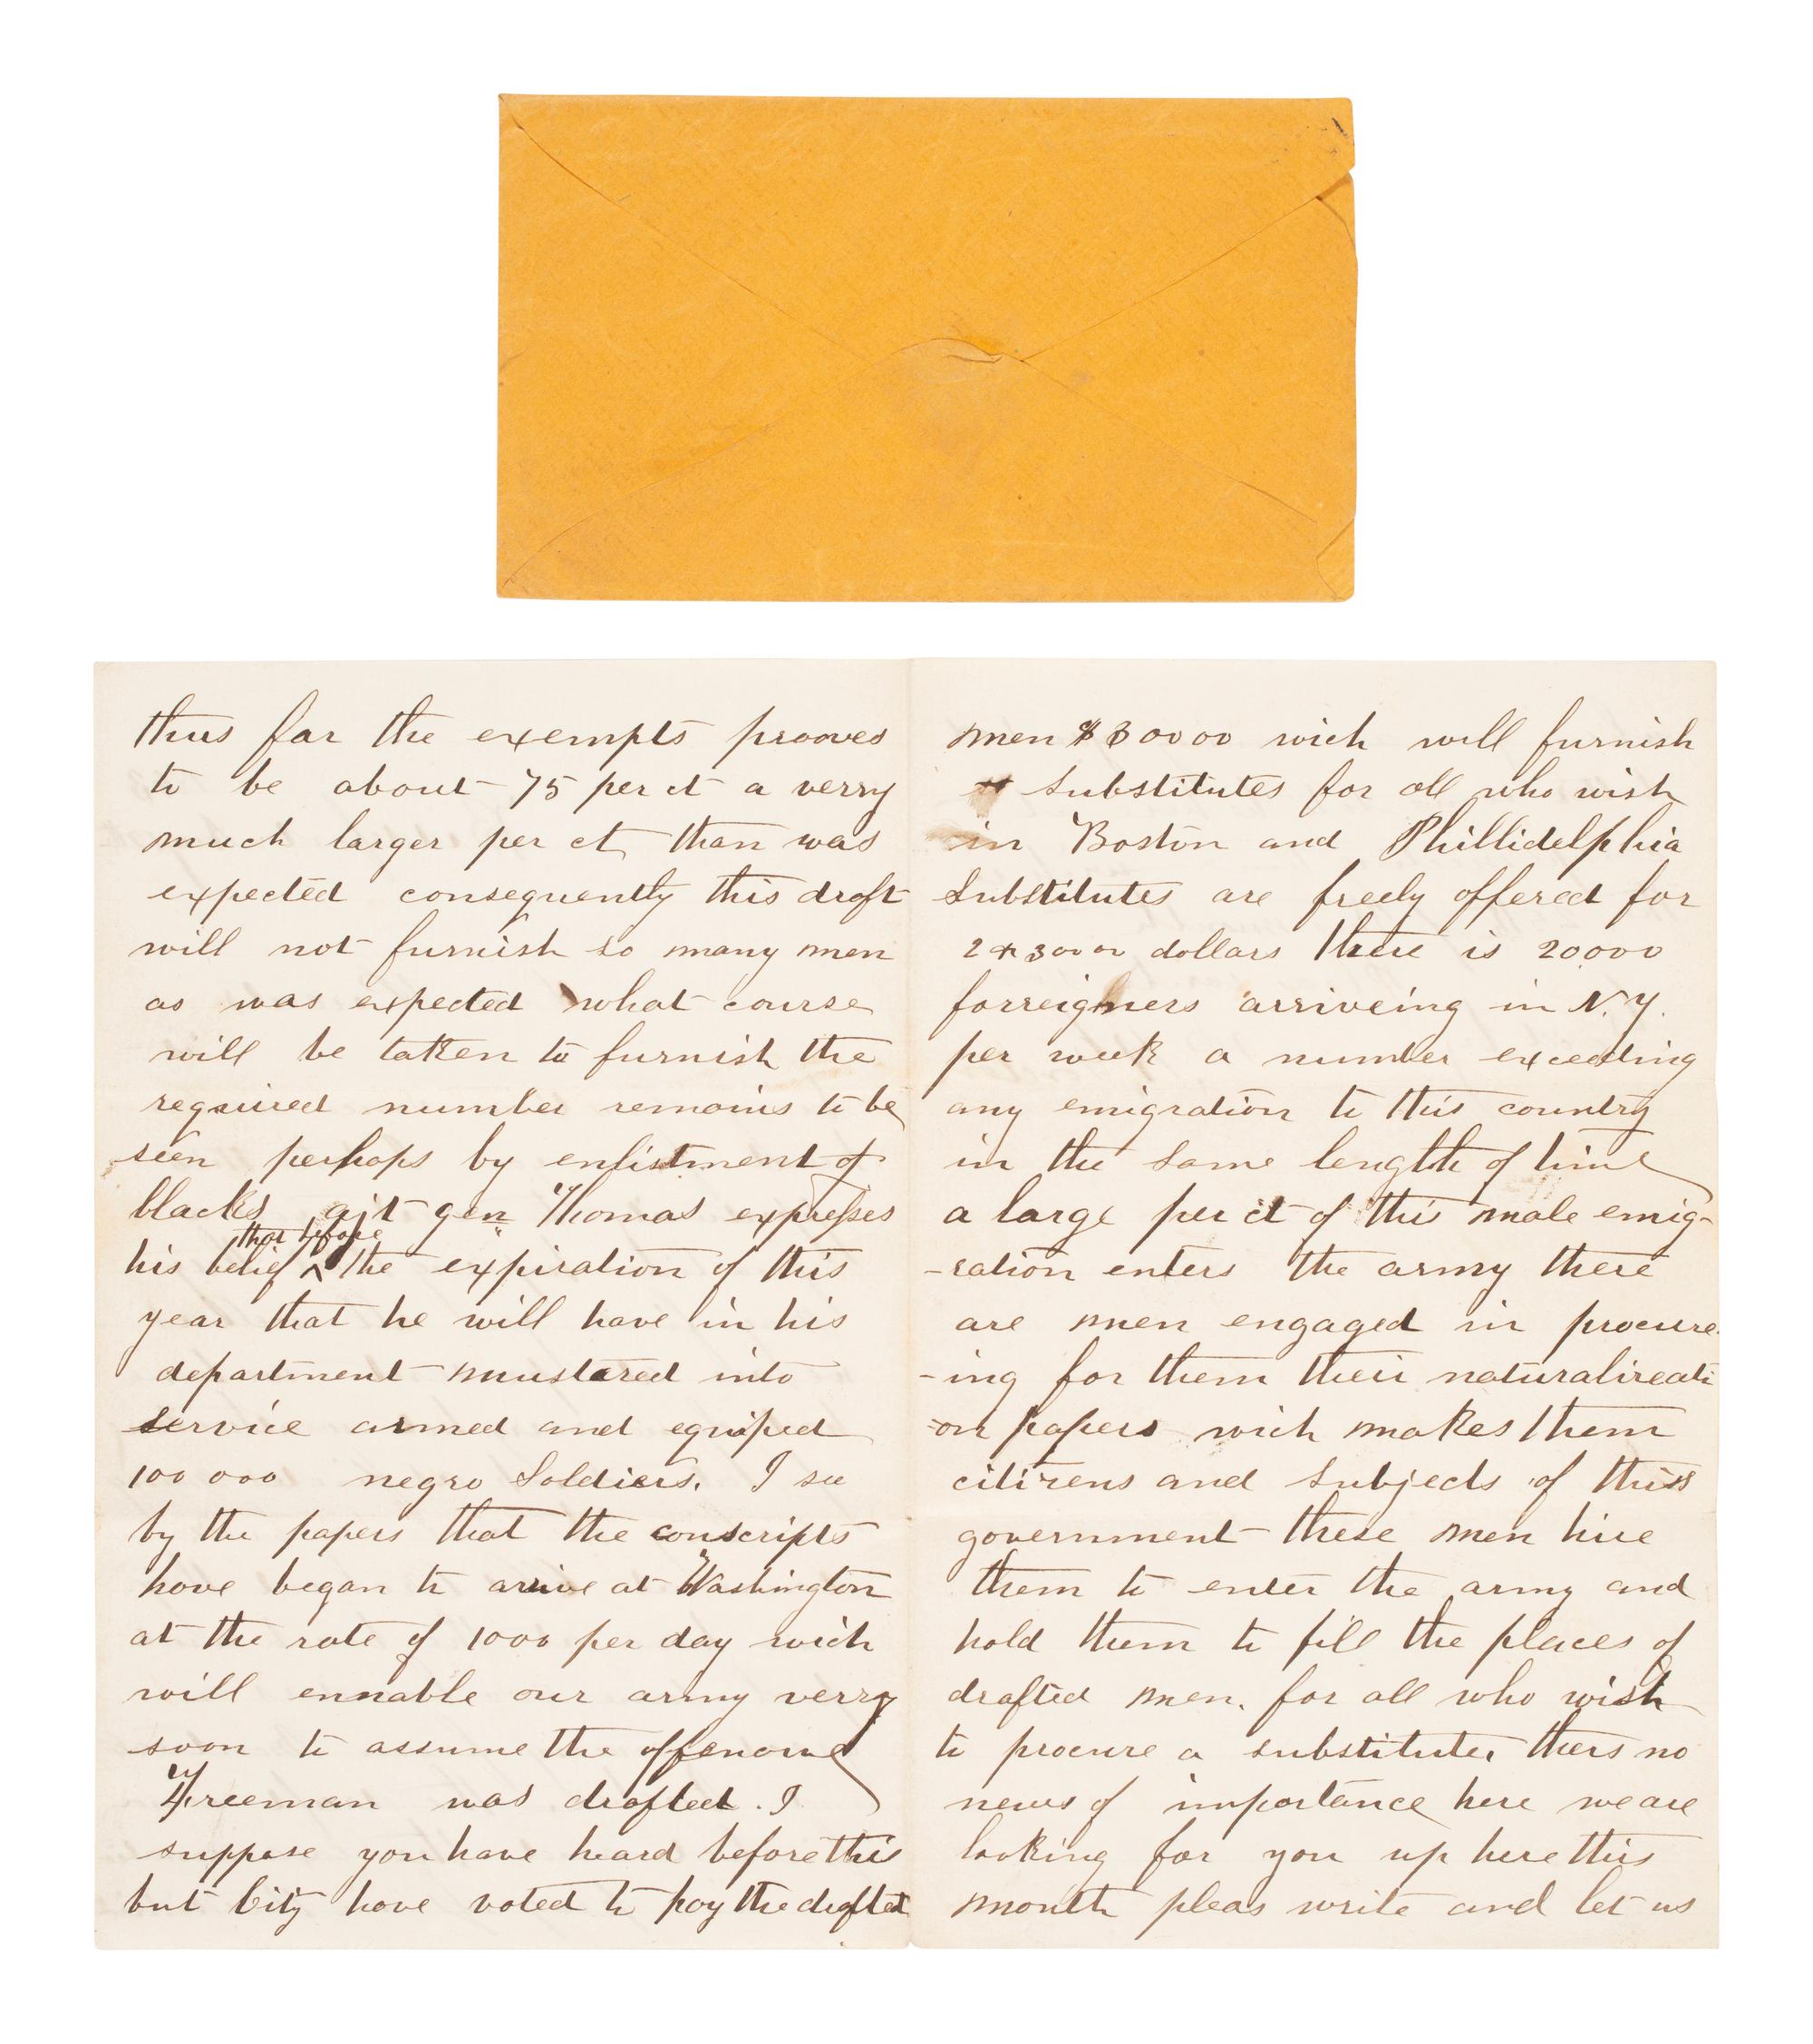 thus far the exempts prooves
to be about 75 per ct a verry
much larger per ct than was
expected consequently this draft
will not furnish so many men
as was expected what course
will be taken to furnish the
required number remains to be
seen perhaps by enlistment of
blacks ajt gen Thomas expresses
that before
his belief ^ the expiration of this
year that he will have in his
department mustared into
service armed and equiped
100 000 negro Soldiers. I see
by the papers that the conscripts
have began to arrive at Washington
at the rate of 1000 per day wich
will ennable our army verry
soon to assume the offencive
Freeman was drafted. I
suppose you have heard before this
but City have voted to pay the drafted
men $30000 wich will furnish
substitutes for all who wish
in Boston and Phillidelphia
Substitutes are freely offered for
2 & 30000 dollars there is 20000
forreigners arriveing in N.Y.
per week a number exceeding
any emigration to this country
in the same length of time
a large per ct of this male emig-
-ration enters the army there
are men engaged in procure
-ing for them their naturalizati
-on papers wich makes them
citizens and subjects of this
government these men hire
them to enter the army and
hold them to fill the places of
drafted men. for all who wish
to procure a substitute, thers no
news of importance here we are
looking for you up here this
month pleas write and let us